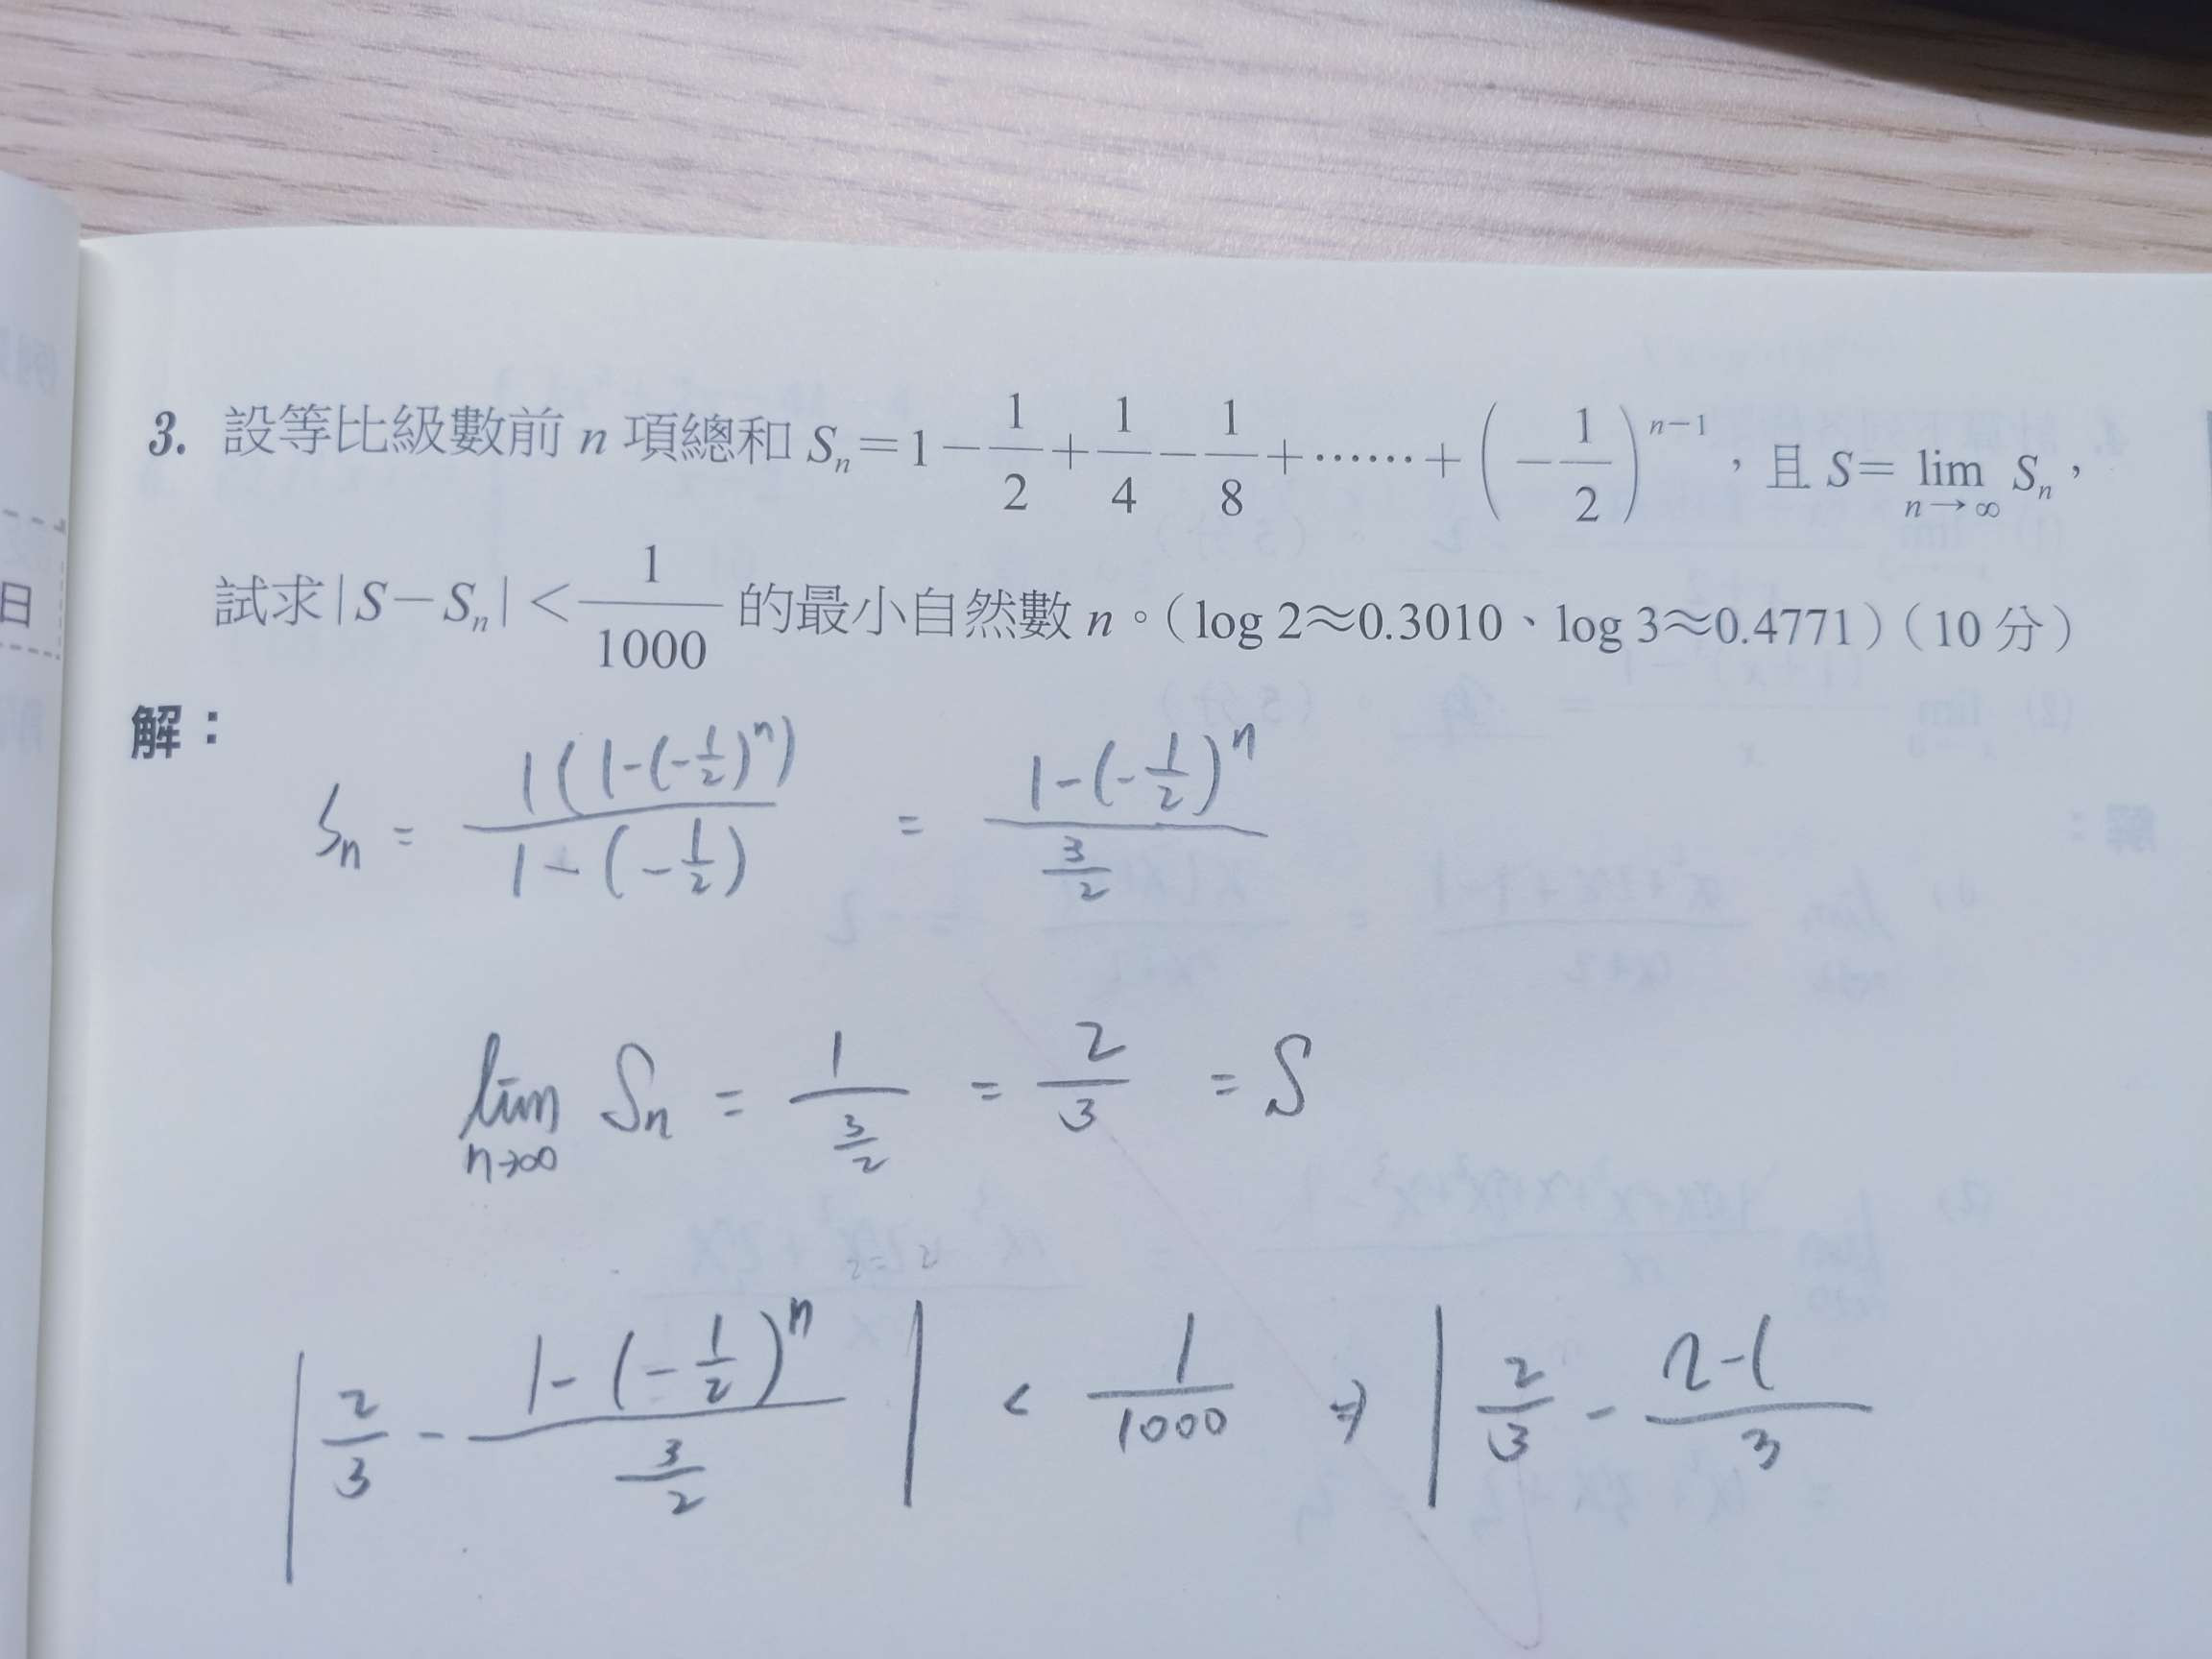 3. 設等比級數前 n 項總和 Sₙ=1-1/2+1/4-1/8+……+(-1/2)ⁿ⁻¹,且 S=lim_{n→∞} Sₙ,
試求|S-Sₙ|<1/1000 的最小自然數 n。(log 2≈0.3010、log 3≈0.4771)(10 分)
解:
Sₙ = 1(1-(-1/2)ⁿ)/(1-(-1/2)) = (1-(-1/2)ⁿ)/(3/2)
lim_{n→∞} Sₙ = 1/(3/2) = 2/3 = S
|2/3 - (1-(-1/2)ⁿ)/(3/2)| < 1/1000 ⇒ |2/3 - (2-(/3
日